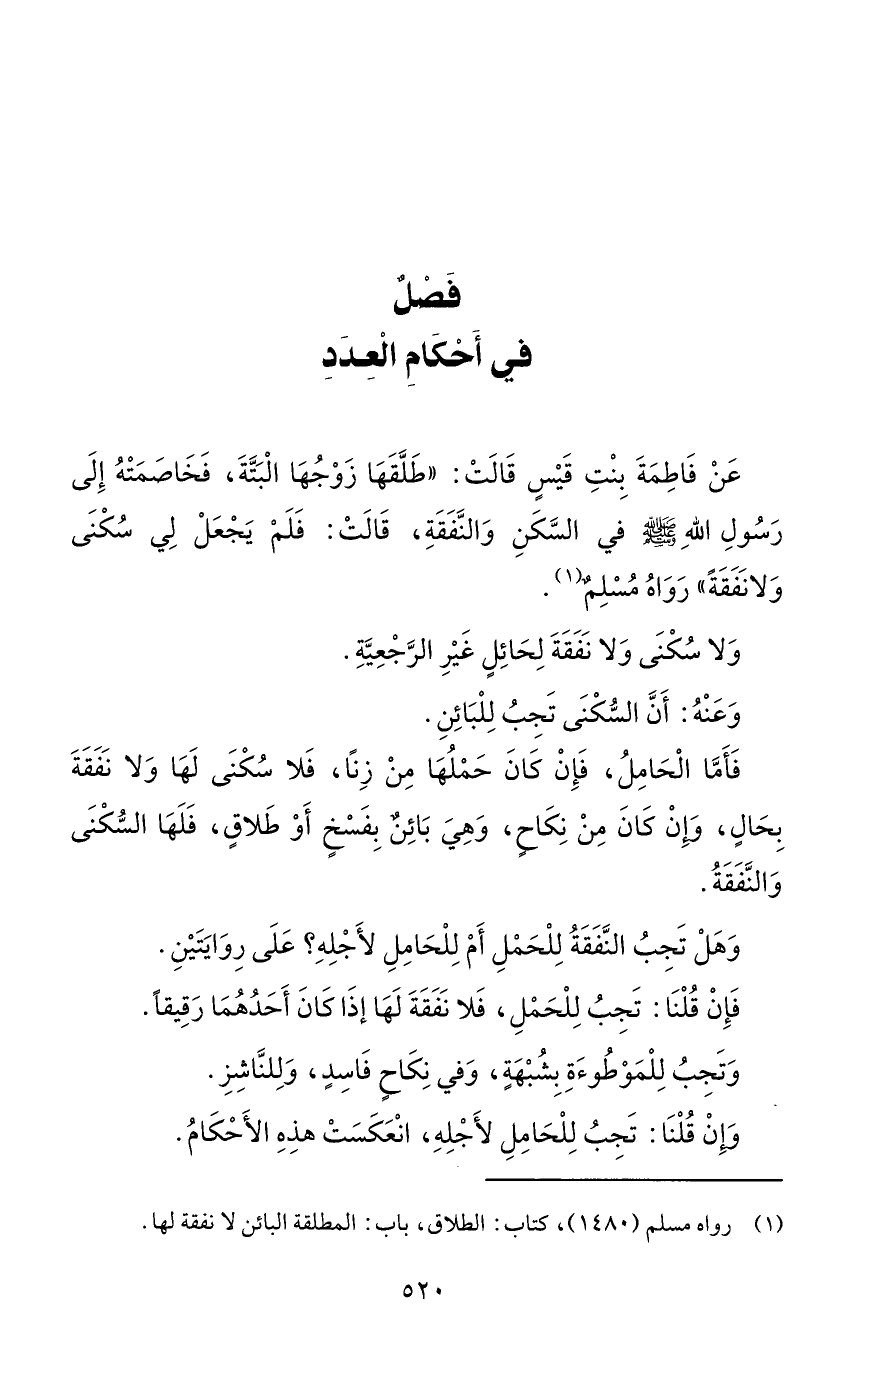 فَصْلٌ
في أَحْكَامِ الْعِدَدِ
عَنْ فَاطِمَةَ بِنْتِ قَيْسٍ قَالَتْ: «طَلَّقَهَا زَوْجُهَا الْبَتَّةَ، فَخَاصَمَتْهُ إِلَى
رَسُولِ اللهِ ﷺ في السَّكَنِ وَالنَّفَقَةِ، قَالَتْ: فَلَمْ يَجْعَلْ لِي سُكْنَى
وَلا نَفَقَةً» رَوَاهُ مُسْلِمٌ(١).
وَلا سُكْنَى وَلا نَفَقَةَ لِحَائِلٍ غَيْرِ الرَّجْعِيَّةِ.
وَعَنْهُ: أَنَّ السُّكْنَى تَجِبُ لِلْبَائِنِ.
فَأَمَّا الْحَامِلُ، فَإِنْ كَانَ حَمْلُهَا مِنْ زِنًا، فَلا سُكْنَى لَهَا وَلا نَفَقَةَ
بِحَالٍ، وَإِنْ كَانَ مِنْ نِكَاحٍ، وَهِيَ بَائِنٌ بِفَسْخٍ أَوْ طَلاقٍ، فَلَهَا السُّكْنَى
وَالنَّفَقَةُ.
وَهَلْ تَجِبُ النَّفَقَةُ لِلْحَمْلِ أَمْ لِلْحَامِلِ لأَجْلِهِ؟ عَلَى رِوَايَتَيْنِ.
فَإِنْ قُلْنَا: تَجِبُ لِلْحَمْلِ، فَلا نَفَقَةَ لَهَا إِذَا كَانَ أَحَدُهُمَا رَقِيقاً.
وَتَجِبُ لِلْمَوْطُوءَةِ بِشُبْهَةٍ، وَفي نِكَاحٍ فَاسِدٍ، وَلِلنَّاشِزِ.
وَإِنْ قُلْنَا: تَجِبُ لِلْحَامِلِ لأَجْلِهِ، انْعَكَسَتْ هذِهِ الأَحْكَامُ.
(١) رواه مسلم (١٤٨٠)، كتاب: الطلاق، باب: المطلقة البائن لا نفقة لها.
٥٢٠